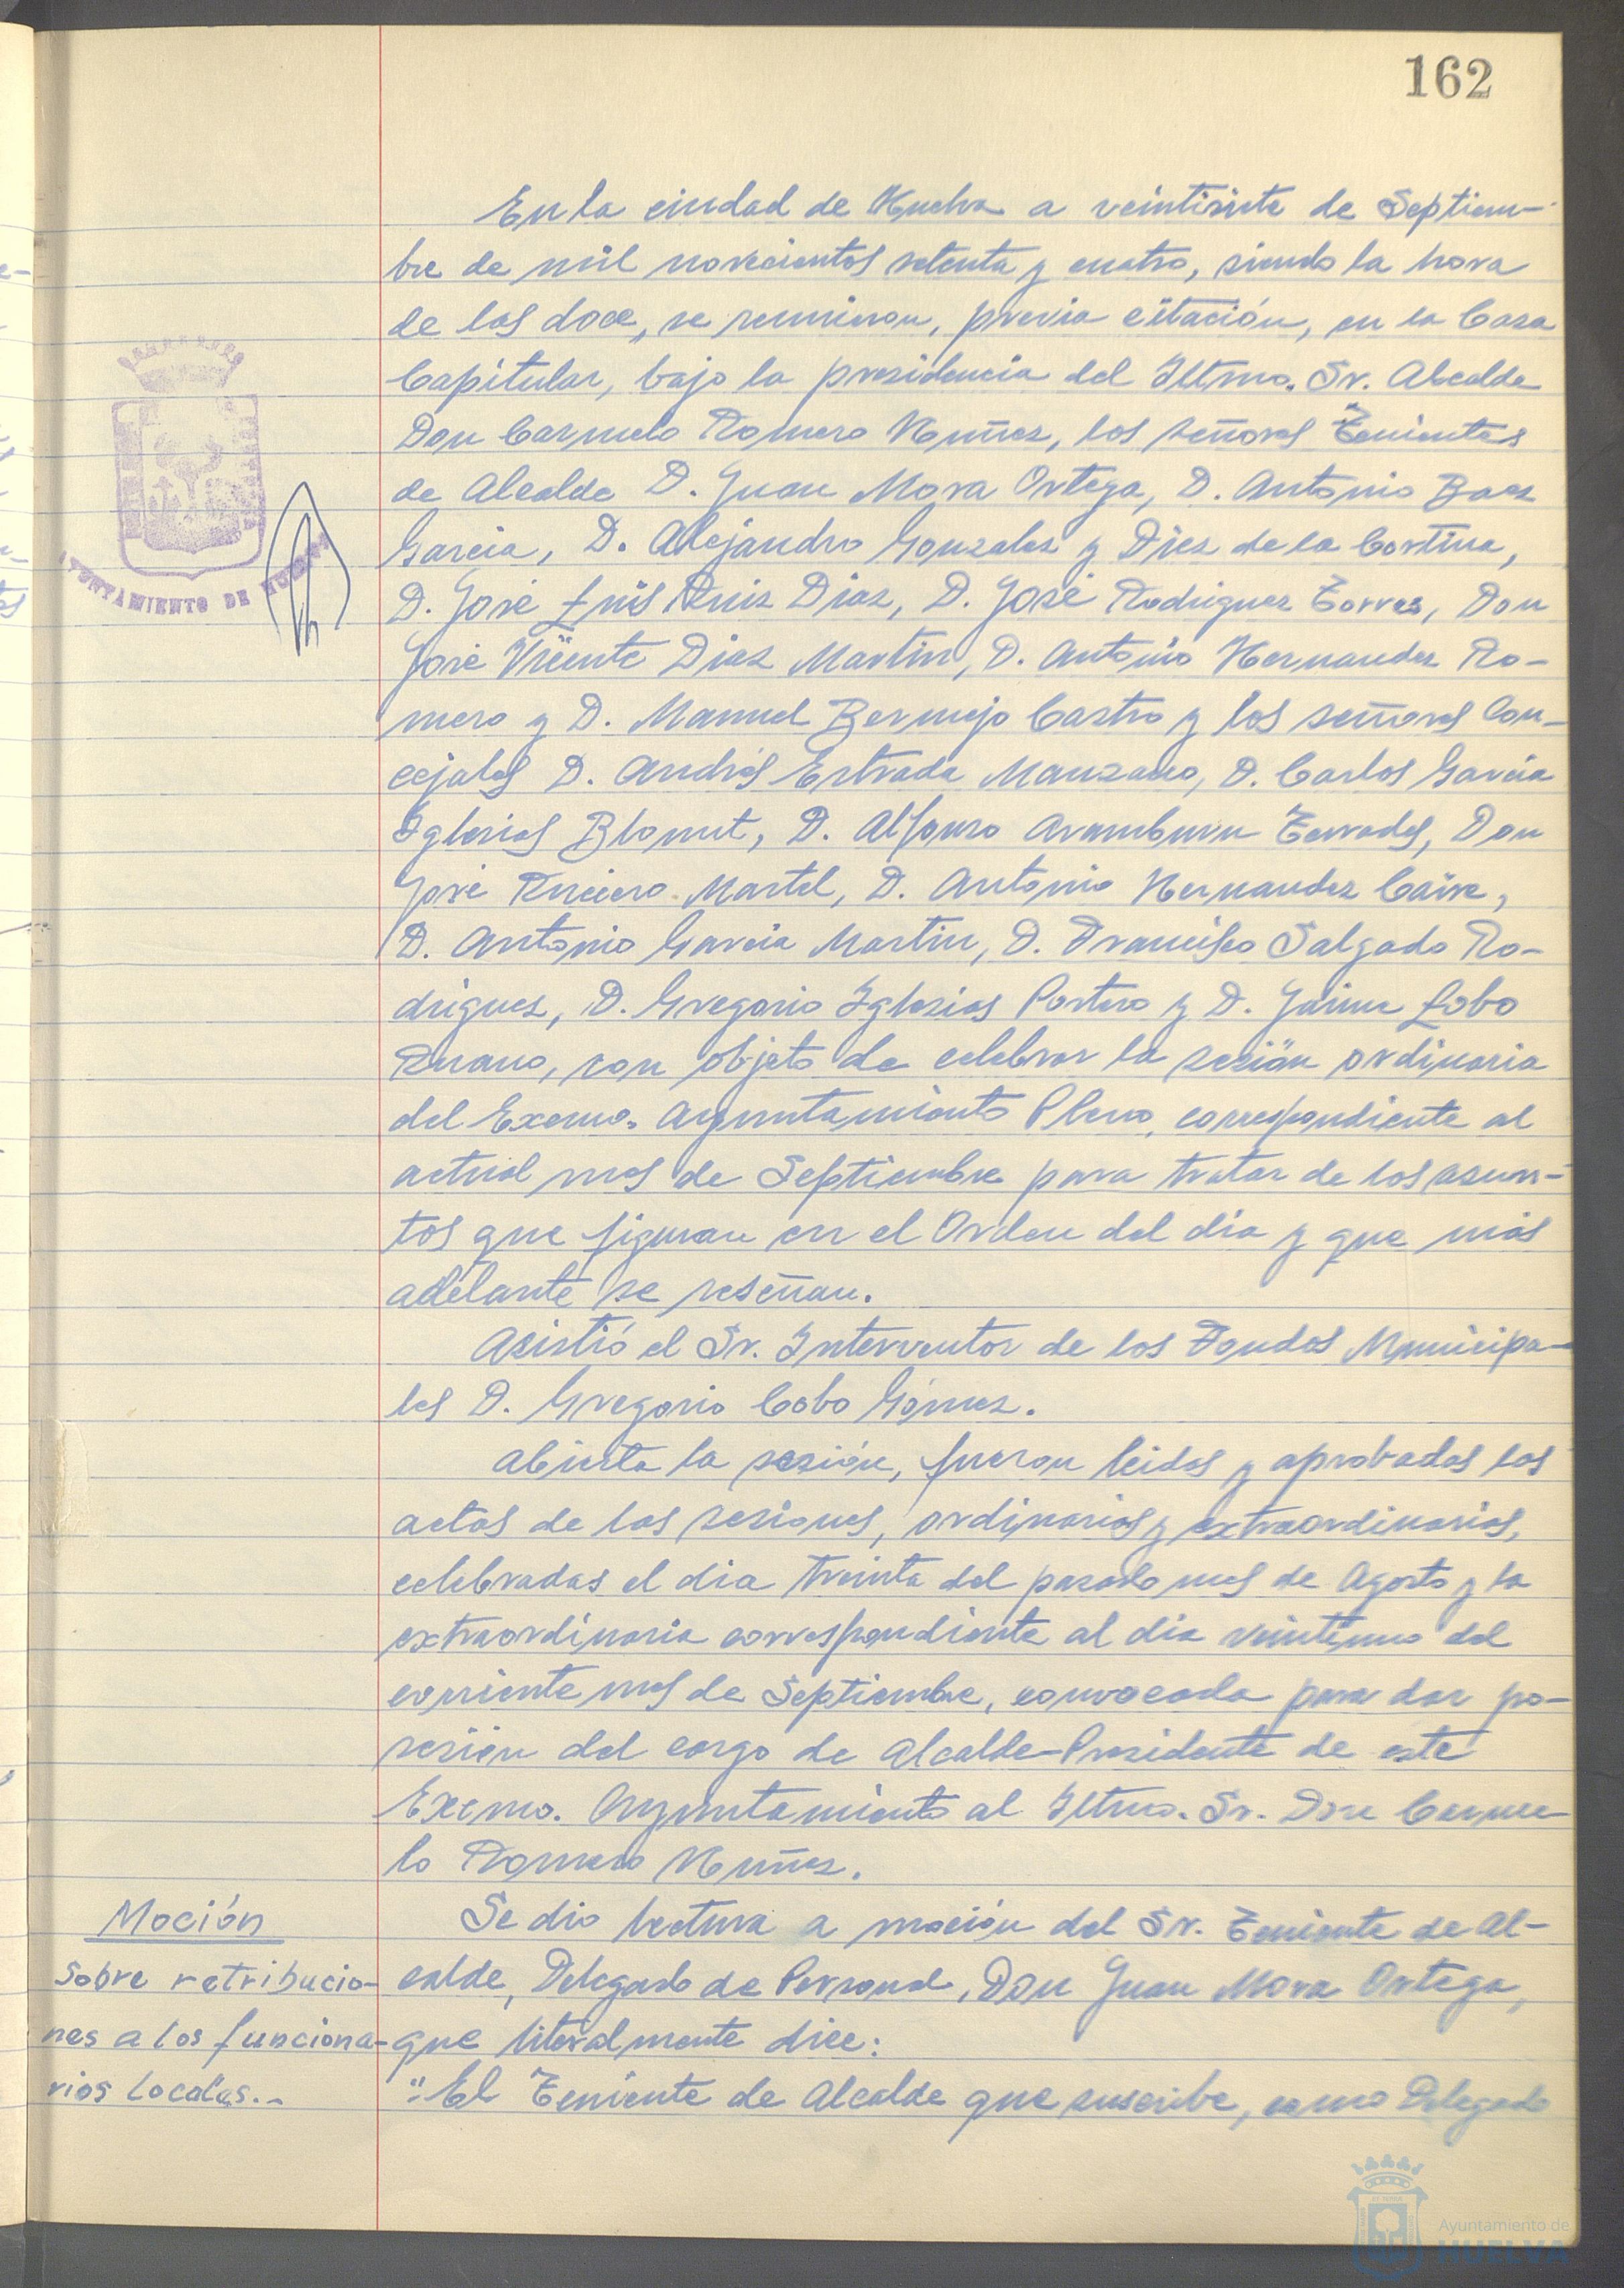 162
En la ciudad de Huelva a veintisiete de Septiem-
bre de mil novecientos setenta y cuatro, siendo la hora
de las doce, se reunieron, previa citación, en la Casa
Capitular, bajo la presidencia del Iltmo. Sr. Alcalde
Don Carmelo Romero Nuñez, los señores Tenientes
de Alcalde D. Juan Mora Ortega, D. Antonio Baez
Garcia, D. Alejandro Gonzalez y Diez de la Cortina,
D. José Luis Ruiz Diaz, D. José Rodriguez Torres, Don
José Vicente Diaz Martin, D. Antonio Hernandez Ro-
mero y D. Manuel Bermejo Castro y los señores Con-
cejales D. Andrés Estrada Manzano, D. Carlos Garcia
Iglesias Blomut, D. Alfonso Aramburu Terrades, Don
José Ruciero Martel, D. Antonio Hernandez Caire,
D. Antonio Garcia Martin, D. Francisco Salgado Ro-
driguez, D. Gregorio Iglesias Portero y D. Jaime Lobo
Ruano, con objeto de celebrar la sesión ordinaria
del Excmo. Ayuntamiento Pleno, correspondiente al
actual mes de Septiembre para tratar de los asun-
tos que figuran en el Orden del dia y que más
adelante se reseñan.
Asistió el Sr. Interventor de los Fondos Municipa-
les D. Gregorio Cobo Gómez.
Abierta la sesión, fueron leidas y aprobadas las
actas de las sesiones, ordinarias y extraordinarias,
celebradas el dia treinta del pasado mes de Agosto y la
extraordinaria correspondiente al dia veintiuno del
corriente mes de Septiembre, convocada para dar po-
sesión del cargo de Alcalde-Presidente de este
Excmo. Ayuntamiento al Iltmo. Sr. Don Carme-
lo Romero Nuñez.
Se dio lectura a moción del Sr. Teniente de Al-
calde, Delegado de Personal, Don Juan Mora Ortega,
que literalmente dice:
"El Teniente de Alcalde que suscribe, como Delegado
Moción
sobre retribucio-
nes a los funciona-
rios locales.-
AYUNTAMIENTO DE HUELVA
Ayuntamiento de
HUELVA